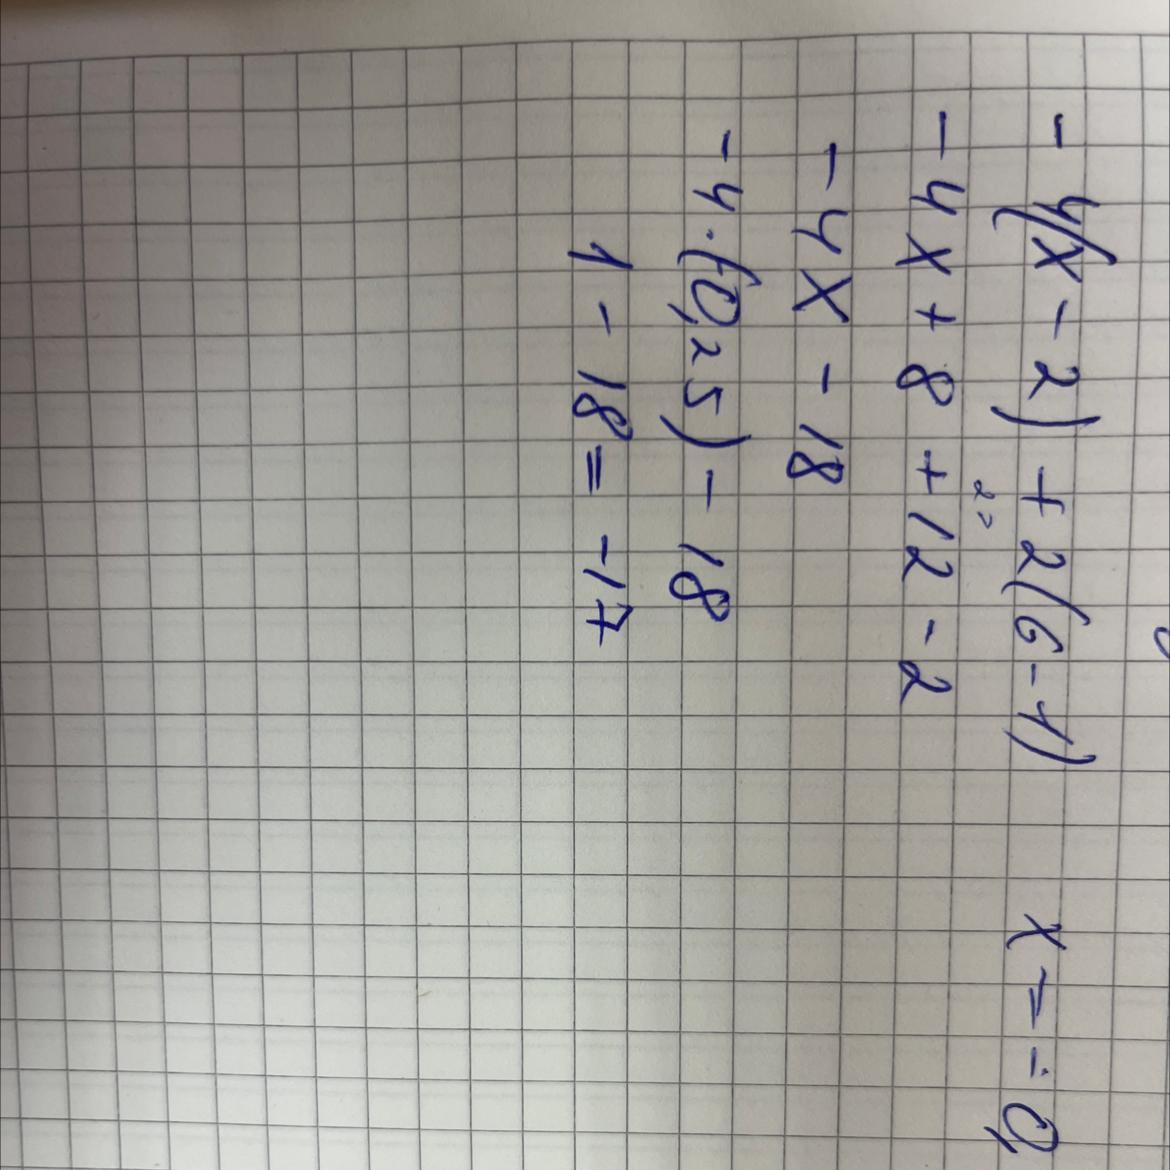 - 4(x - 2) + 2(6 - 1) x = - 0,
- 4x + 8 + 12 - 2
- 4x - 18
- 4 · (-0,25) - 18
1 - 18 = -17